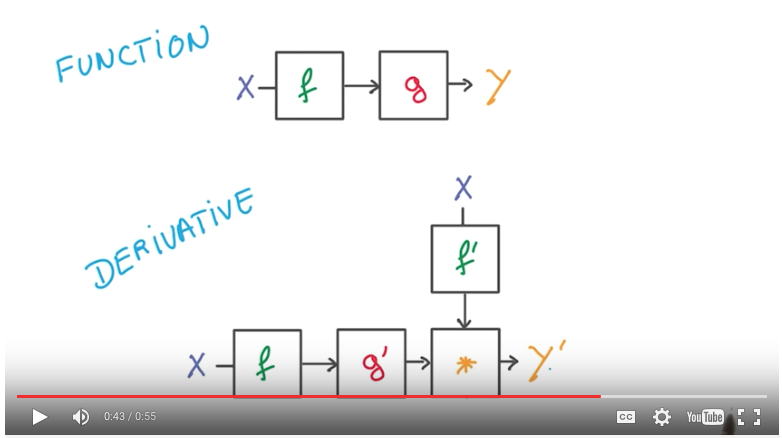 FUNCTION
X f g Y
DERIVATIVE
X
f'
X f g' * Y'
0:43 / 0:55
CC
YouTube